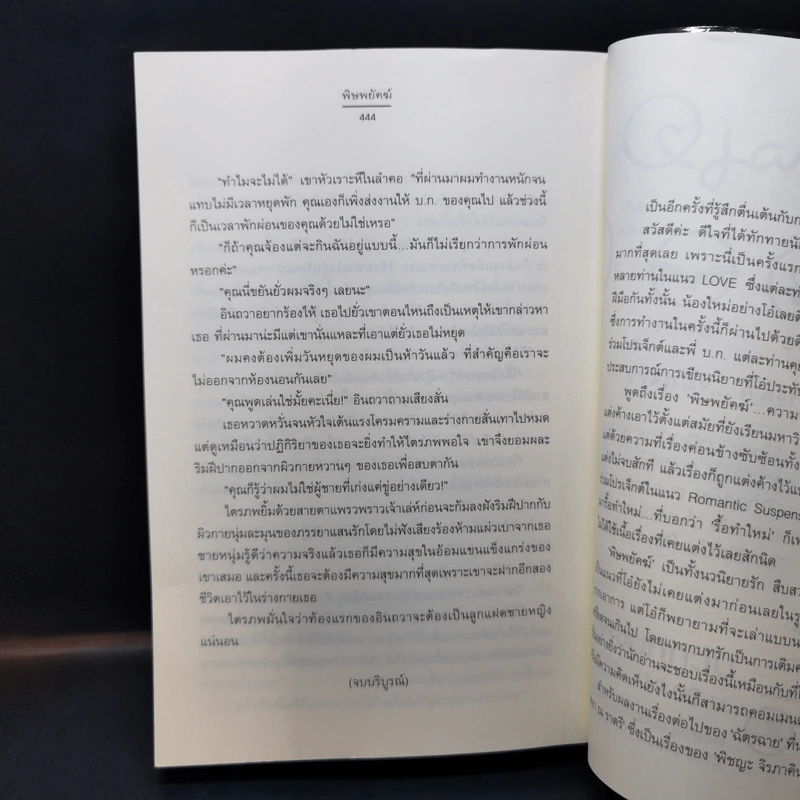 พิษพยัคฆ์
444
"ทำไมจะไม่ได้" เขาหัวเราะหึในลำคอ "ที่ผ่านมาผมทำงานหนักจน
แทบไม่มีเวลาหยุดพัก คุณเองก็เพิ่งส่งงานให้ บ.ก. ของคุณไป แล้วช่วงนี้
ก็เป็นเวลาพักผ่อนของคุณด้วยไม่ใช่เหรอ"
"ก็ถ้าคุณจ้องแต่จะกินฉันอยู่แบบนี้...มันก็ไม่เรียกว่าการพักผ่อน
หรอกค่ะ"
"คุณนี่ขยันยั่วผมจริงๆ เลยนะ"
อินถวาอยากร้องไห้ เธอไปยั่วเขาตอนไหนถึงเป็นเหตุให้เขากล่าวหา
เธอ ที่ผ่านมาน่ะมีแต่เขานั่นแหละที่เอาแต่ยั่วเธอไม่หยุด
"ผมคงต้องเพิ่มวันหยุดของผมเป็นห้าวันแล้ว ที่สำคัญคือเราจะ
ไม่ออกจากห้องนอนกันเลย"
"คุณพูดเล่นใช่มั้ยคะเนี่ย!" อินถวาถามเสียงสั่น
เธอหวาดหวั่นจนหัวใจเต้นแรงโครมครามและร่างกายสั่นเทาไปหมด
แต่ดูเหมือนว่าปฏิกิริยาของเธอจะยิ่งทำให้ไตรภพพอใจ เขาจึงยอมผละ
ริมฝีปากออกจากผิวกายหวานๆ ของเธอเพื่อสบตากัน
"คุณก็รู้ว่าผมไม่ใช่ผู้ชายที่เก่งแค่ขู่อย่างเดียว!"
ไตรภพยิ้มด้วยสายตาแพรวพราวเจ้าเล่ห์ก่อนจะก้มลงฝังริมฝีปากกับ
ผิวกายนุ่มละมุนของภรรยาแสนรักโดยไม่ฟังเสียงร้องห้ามแผ่วเบาจากเธอ
ชายหนุ่มรู้ดีว่าความจริงแล้วเธอก็มีความสุขในอ้อมแขนแข็งแกร่งของ
เขาเสมอ และครั้งนี้เธอจะต้องมีความสุขมากที่สุดเพราะเขาจะฝากอีกสอง
ชีวิตเอาไว้ในร่างกายเธอ
ไตรภพมั่นใจว่าท้องแรกของอินถวาจะต้องเป็นลูกแฝดชายหญิง
แน่นอน
(จบบริบูรณ์)
เป็นอีกครั้งที่รู้สึกตื่นเต้นกับก
สวัสดีค่ะ ดีใจที่ได้ทักทายนัก
มากที่สุดเลย เพราะนี่เป็นครั้งแรก
หลายท่านในแนว LOVE ซึ่งแต่ละท่า
ฝีมือกันทั้งนั้น น้องใหม่อย่างโอ๋เลยดี
ซึ่งการทำงานในครั้งนี้ก็ผ่านไปด้วยดี
ร่วมโปรเจ็กต์และพี่ บ.ก. แต่ละท่านคุย
ประสบการณ์การเขียนนิยายที่โอ๋ประทับ
พูดถึงเรื่อง 'พิษพยัคฆ์'...ความ
แต่งค้างเอาไว้ตั้งแต่สมัยที่ยังเรียนมหาวิ
แต่ด้วยความที่เรื่องค่อนข้างซับซ้อนทั้ง
แต่งไม่จบสักที แล้วเรื่องก็ถูกแต่งค้างไว้แ
ร่วมโปรเจ็กต์ในแนว Romantic Suspens
มารื้อทำใหม่...ที่บอกว่า 'รื้อทำใหม่' ก็เพ
ไม่ได้ใช้เนื้อเรื่องที่เคยแต่งไว้เลยสักนิด
'พิษพยัคฆ์' เป็นทั้งนวนิยายรัก สืบสว
เป็นแนวที่โอ๋ยังไม่เคยแต่งมาก่อนเลยในรู
อาการ แต่โอ๋ก็พยายามที่จะเล่าแบบน
จนเกินไป โดยแทรกบทรักเป็นการเติมค
อย่างยิ่งว่านักอ่านจะชอบเรื่องนี้เหมือนกับที่โ
มีความคิดเห็นยังไงนั้นก็สามารถคอมเมนต
สำหรับผลงานเรื่องต่อไปของ 'ฉัตรฉาย' ที่น
ณ ราตรี' ซึ่งเป็นเรื่องของ 'พิชญะ จิรภาคิน